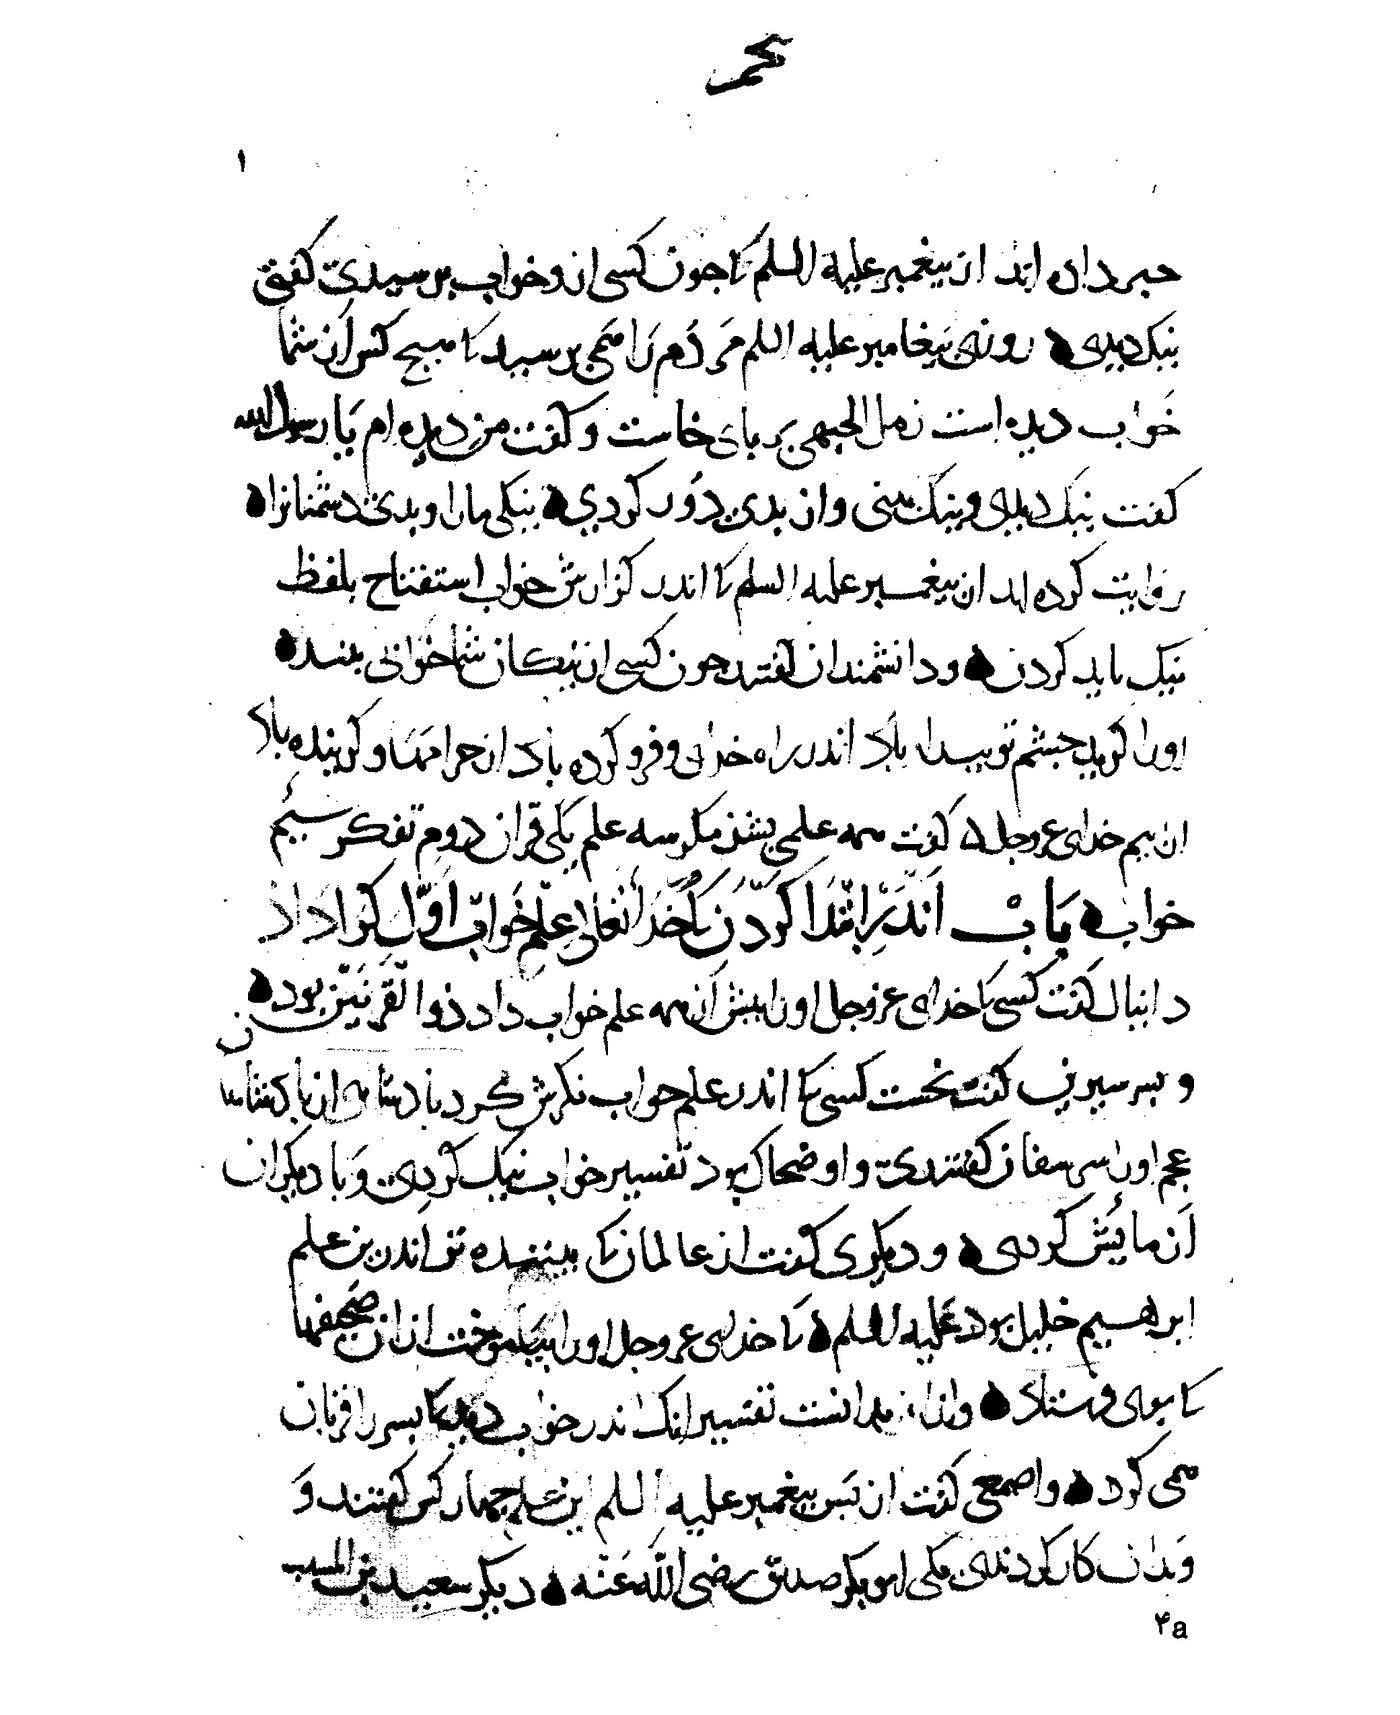 ۱
خبر داده اند از پیغمبر علیه السلم کا جون کسی ازو خواب برسیدی کفتی
نیک دیدی روزی بیغامبر علیه السلم مردم را همی برسید کا هیج کس از شما
خواب دیده است زمل الجهنی بر بای خاست و کفت من دیده ام یا رسول الله
کفت نیک دیدی و نیک بینی و از بدی دور کردی نیکی مارا و بدی دشمنانرا
روایت کرده اند از بیغمبر علیه السلم کا اندر کزارش خواب استفتاح بلفظ
نیک باید کردن و دانشمندان کفتند جون کسی از نیکان شما خوابی بیند
اورا کویید جشم تو بیدار باذ اندر راه خدای و فرو کرده باذ از حرامها و کرینده باذ
از بیم خدای عزوجل کفت همه علمی بشذ مکر سه علم یکی قران دوم تفکر سیم
خواب باب اندر ابتدا کردن کا خدا تعالی علم خواب اول کرا داد
دانیال کفت کسی کا خدای عزوجل اورا بیش از همه علم خواب داد ذوالقرنین بود
و بسر سیرین کفت نخست کسی کا اندر علم خواب نکرش کرد باذشاهی از باذشاهان
عجم اورا کفتندی و او ضحاک بود تفسیر خواب نیک کردی و با دیکران
آزمایش کردی و دیکری کفت از عالمان کا بیننده تر اندرین علم
ابرهیم خلیل بود علیه السلم کا خدای عزوجل اورا بیاموخت از آن صحیفها
کا بوی فرستاذ دانست تفسیر آنک اندر خواب دید کا بسر را قربان
همی کرد و اصمعی کفت از بس بیغمبر علیه السلم این علم جهار کس کفتند و
و بدان کار کردندی یکی ابوبکر صدیق رضی الله عنه دیکر سعید بن المسیب
۴a